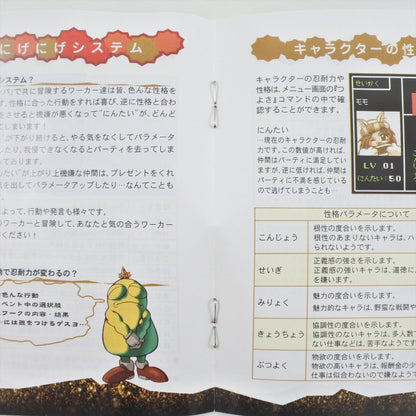 にげにげシステム
システム？
パ”で共に冒険するワーカー達は皆、色んな性格を
す。性格に合った行動をすれば喜び、逆に性格と合わ
させると機嫌が悪くなって”にんたい”が、どんど
てしまいます！
”が下がり続けると、やる気をなくしてパラメータ
したり、我慢できなくなるとパーティを去ってしま
あります。
んたい”が上がり上機嫌な仲間は、プレゼントをくれ
気を出してパラメータアップしたり…なんてことも
よって、行動や発言も様々です。
のワーカーと冒険して、あなたと気の合うワーカー
ください！
動で忍耐力が変わるの？
色んな行動
ベント中の選択肢
ワークの内容・結果
には気をつけるゲスヨ
キャラクターの性
キャラクターの忍耐力や
性格は、メニュー画面の『つ
よさ』コマンドの中で確
認することができます。
にんたい
…現在のキャラクターの忍耐
力です。この数値が高ければ、
仲間はパーティに満足してい
ますが、逆に低ければ、仲間
はパーティに不満を感じている
ので逃げてしまうことも…
せいかく
モモ
LV 01
にんたい：50
性格パラメータについて
こんじょう
根性の度合いを示します。
根性のあまりないキャラは、ハ
られないことも。
せいぎ
正義感の強さを示します。
正義感の強いキャラは、道徳に
を嫌います。
みりょく
魅力の度合いを示します。
魅力的なキャラは、野蛮な戦闘や
きょうちょう
協調性の度合いを示します。
協調性のないキャラは、多人数で
ない仕事などは、苦手なようです
ぶつよく
物欲の度合いを示します。
物欲の高いキャラは、報酬金の少
仕事は似合わないので嫌なよう